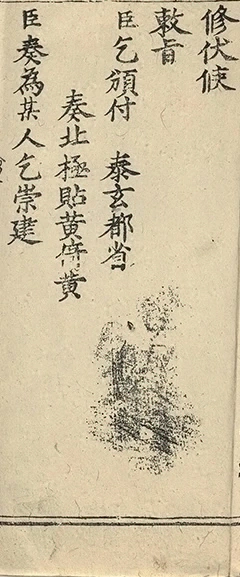 修伏候
敕旨
臣乞頒付 泰玄都省
奏北極貼黃黃
臣奏為某人乞崇建